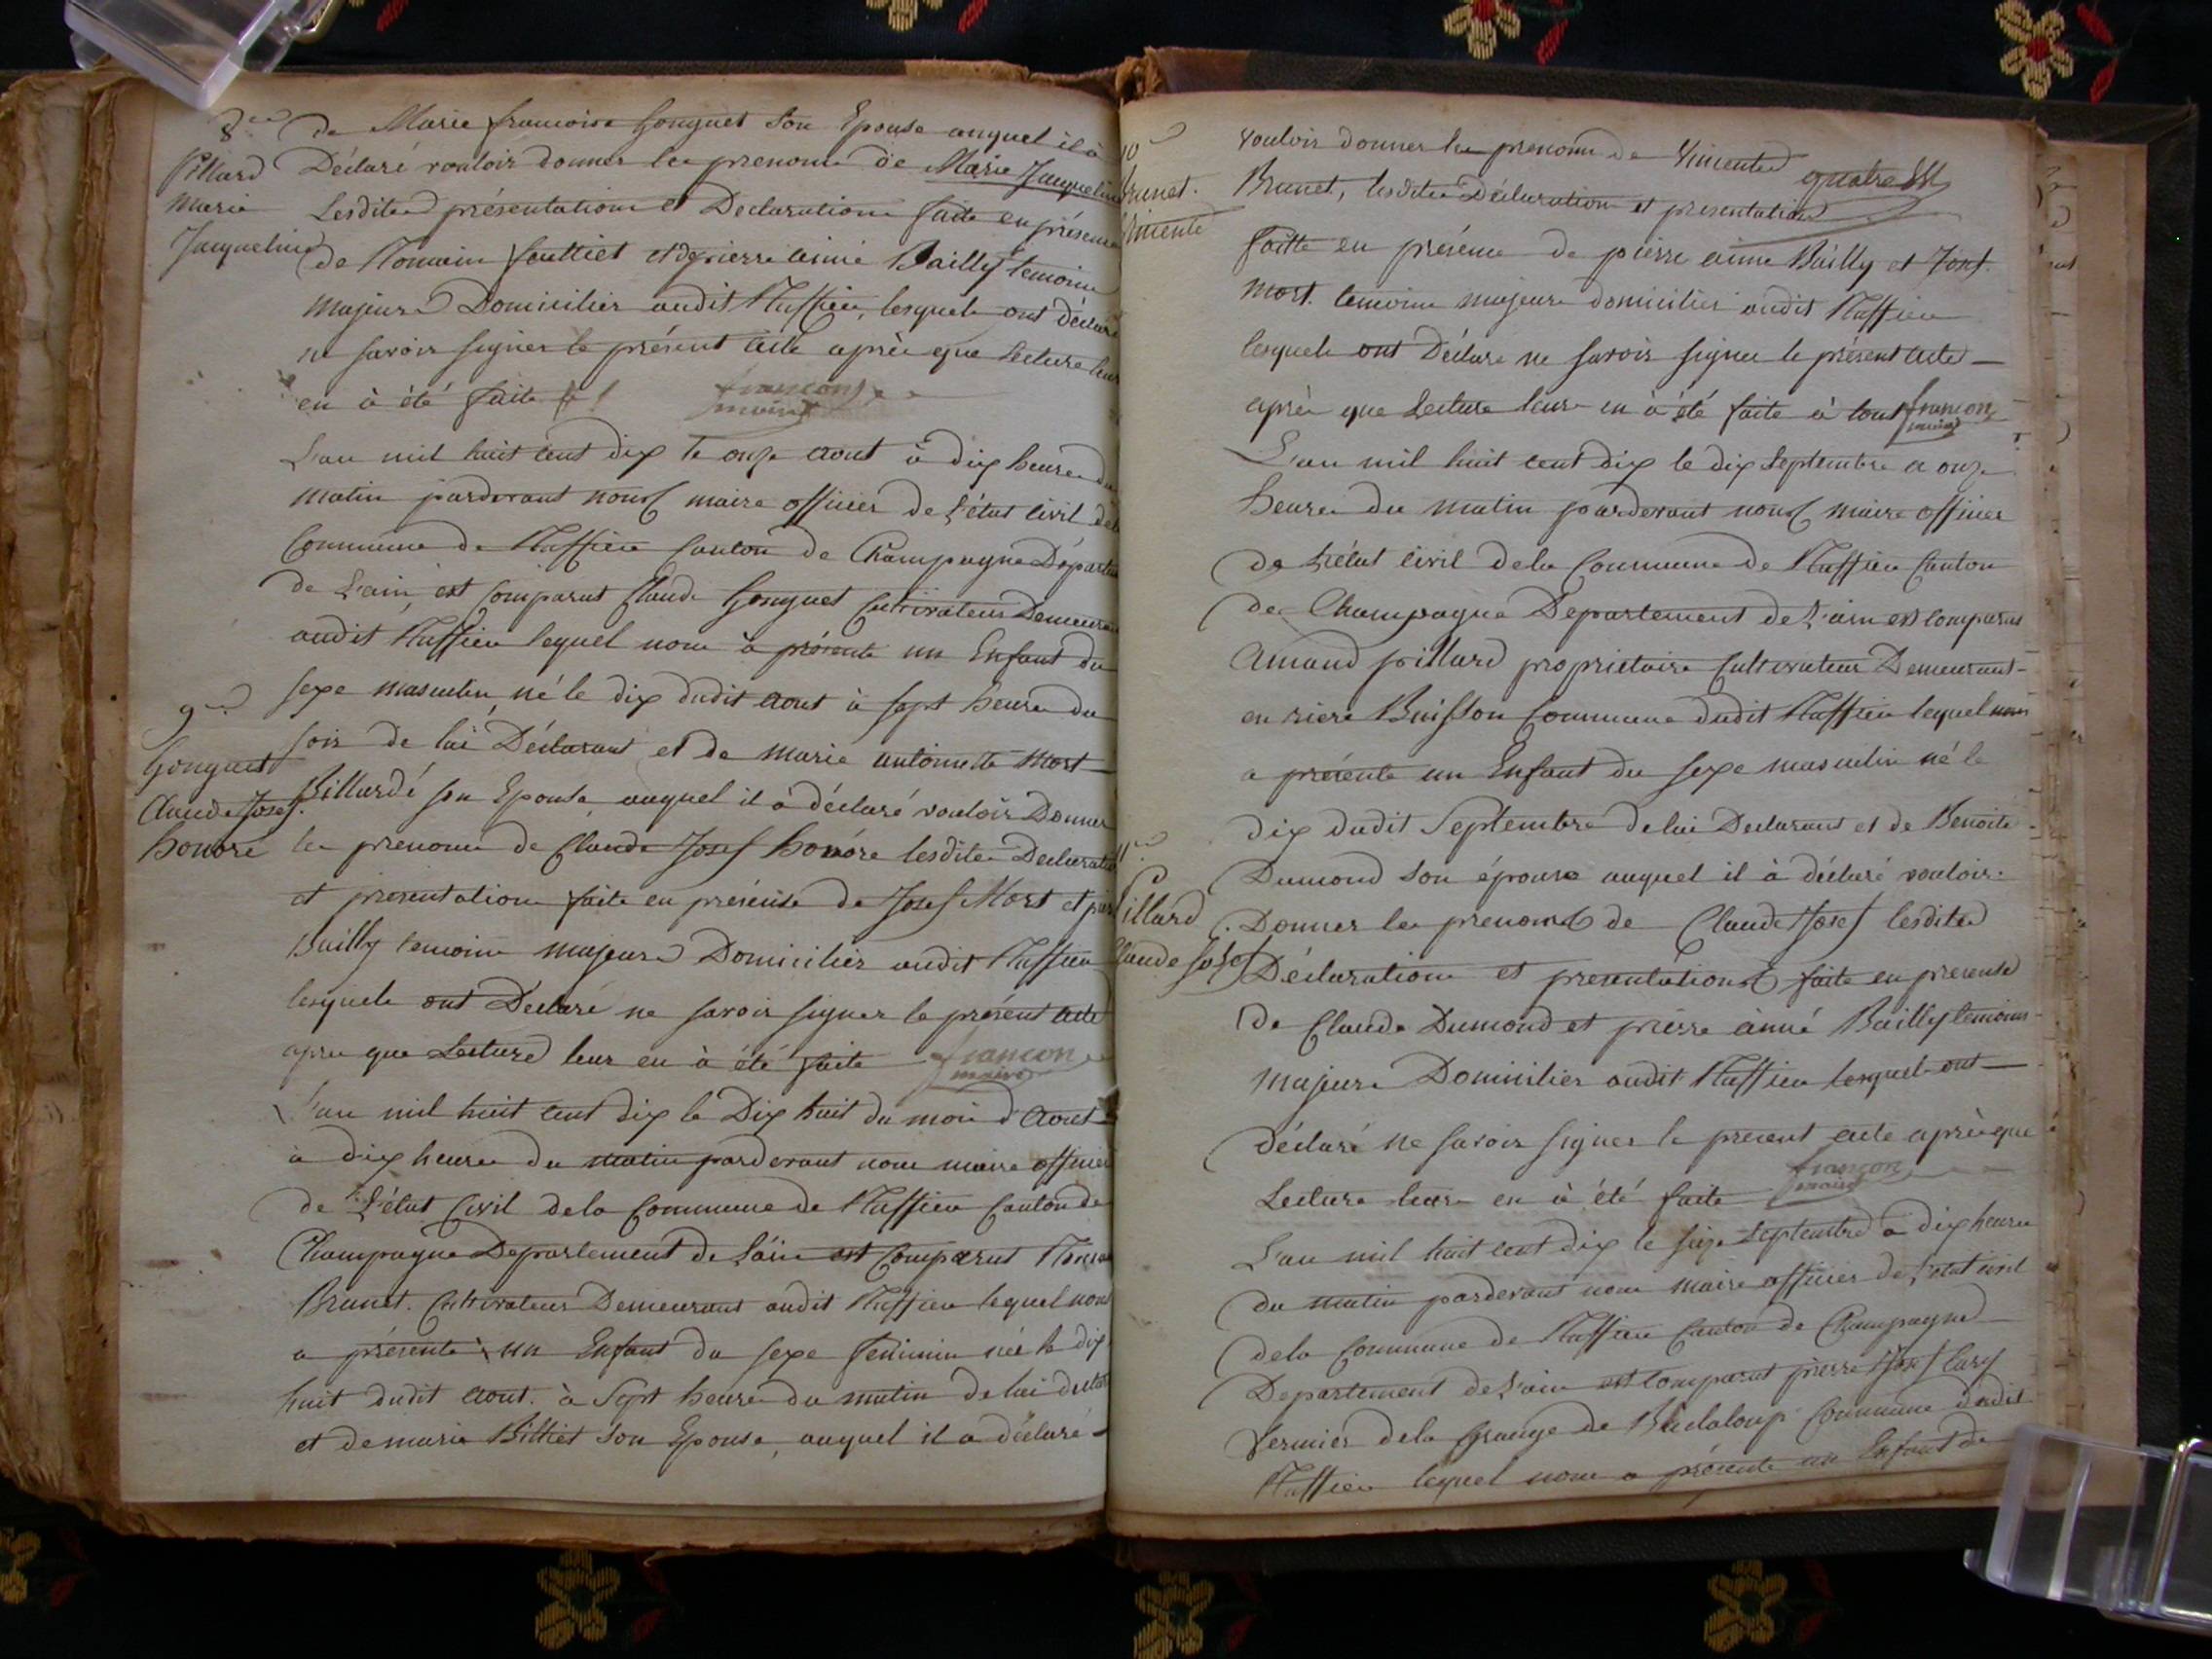 8me
Pillard
Marie
Jacqueline
de Marie francoise Gonguet Son Epouse auquel il à
Déclaré vouloir donner les prenoms de Marie Jacqueline
Lesdites présentation et Declaration faite en présence
de Romain et de pierre aimé Bailly temoins
Majeurs Domiciliés audit Ruffieu, lesquels ont déclaré
ne savoir signer le présent acte après que Lecture leur
en à été faite
francon
maire
L'an mil huit cent dix le onze aout à dix heures du
matin pardevant nous maire officier de L'état civil de la
Commune de Ruffieu Canton de Champagne Départ
de L'ain, est comparut Claude Gonguet Cultivateur Demeurant
audit Ruffieu lequel nous à présenté un Enfant du
sexe masculin, né le dix dudit aout à sept heures du
9me
Gonguet
Claude Josef
honoré
soir de lui Déclarant et de marie antoinette Mort
Billardé son Epouse, auquel il à déclaré vouloir Donner
les prenoms de Claude Josef honoré lesdites Declaration
et presentation faite en présence de Josef Mort et
Bailly temoins majeurs Domiciliés audit Ruffieu
lesquels ont Declaré ne savoir signer le présent acte
apres que Lecture leur en à été faite
francon
maire
L'an mil huit cent dix le Dix huit du mois d'Aout
à dix heures du matin pardevant nous maire officier
de L'état Civil dela Commune de Ruffieu Canton de
Champagne Departement de L'ain est Comparut
Brunet. Cultivateur Demeurant audit Ruffieu lequel nous
a présenté un Enfant du sexe feminin née le dix
huit dudit aout. à Sept heures du matin de lui
et de marie Billiet Son Epouse, auquel il a déclaré
10
Brunet.
Vincente
vouloir donner les prenoms de Vincente
quatre
Brunet, lesdites Déclaration et presentation
faitte en présence de pierre aimé Bailly et Josef.
Mort. temoins majeurs domiciliés audit Ruffieu
lesquels ont Déclaré ne savoir signer le présent acte
après que Lecture leurs en à été faite à tous
francon
maire
L'an mil huit cent dix le dix Septembre a onze
heures du matin pardevant nous maire officier
de L'état Civil dela Commune de Ruffieu Canton
de Champagne Departement de L'ain est comparut
Amand pillard proprietaire Cultivateur Demeurant
en riere Buisson Commune dudit Ruffieu lequel nous
a présenté un Enfant du sexe masculin né le
dix dudit Septembre de lui Declarant et de Benoite
11me
Pillard
Claude Josef
Dumond Son épouse auquel il à déclaré vouloir
Donner les prenoms de Claude Josef lesdites
Déclaration et presentations faite en presence
de Claude Dumond et pierre aimé Bailly temoins
Majeurs Domiciliés audit Ruffieu lesquels ont
déclaré ne savoir signer le present acte après que
Lecture leurs en à été faite
francon
maire
L'an mil huit cent dix le seize Septembre à dix heures
du matin pardevant nous maire officier de L'état civil
dela Commune de Ruffieu Canton de Champagne
Departement de L'ain est comparut pierre Josef
fermier dela Grange de Commune dudit
Ruffieu lequel nous a présenté un Enfant de